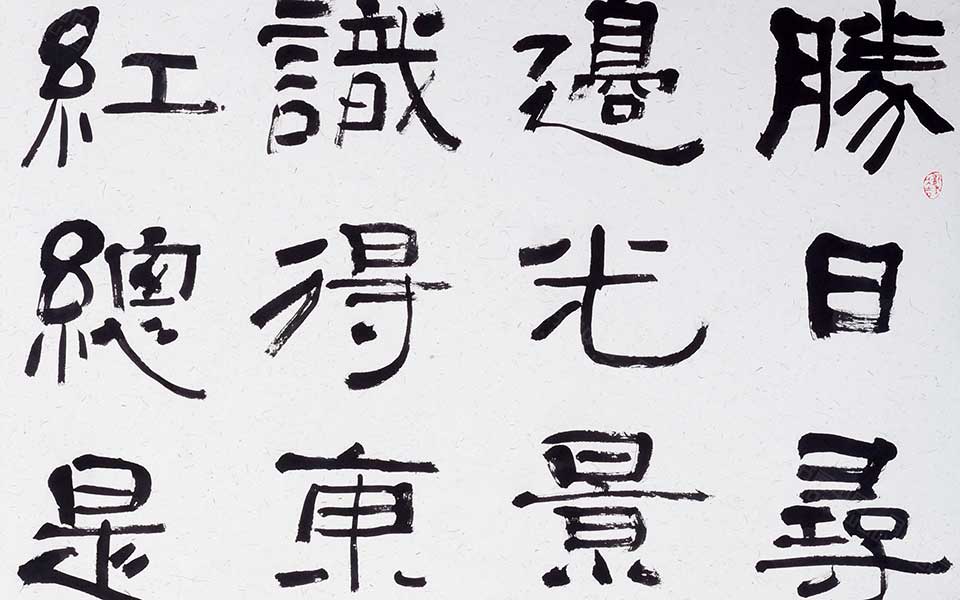 勝日尋
邊光景
識得東
紅總是